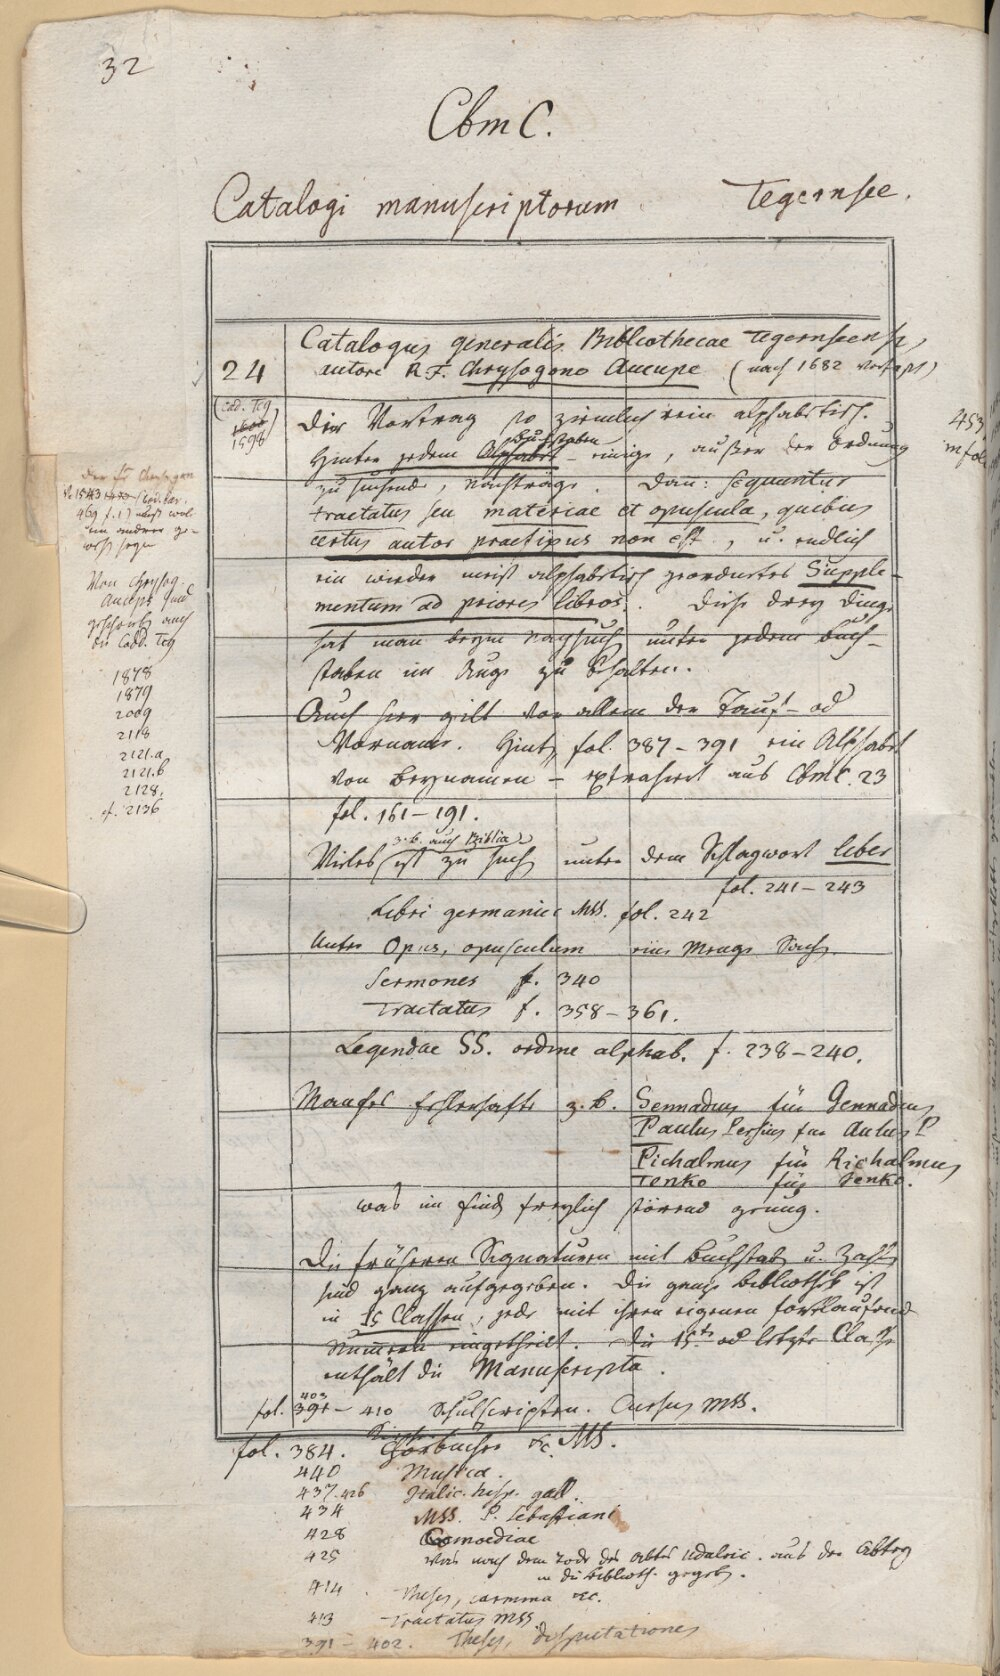 32
Cbm C.
Catalogi manuscriptorum Tegernsee.
24
Catalogus generalis Bibliothecae Tegernseensis,
autore R. F. Chrysogono Aucupe (nach 1682 verfaßt)
(Cod. Teg
1598)
Der Vortrag so ziemlich rein alphabetisch.
Hinter jedem Buchstaben einige, außer der Ordnung
zu suchende, Nachträge. Dan: sequuntur
tractatus seu materiae et opuscula, quibus
certus autor praefixus non est, u. endlich
ein wieder meist alphabetisch geordnetes Supple-
mentum ad priores libros. Diese drey Dinge
hat man beym Nachsuchen unter jedem Buch-
staben im Auge zu behalten.
Auch hier gilt vor allem der Tauf- od
Vorname. Hinten fol. 387-391 ein Alphabet
von Beynamen - extrahirt aus Cbm C. 23
fol. 161-191.
z. B. auch Biblia
Vieles ist zu suchen unter dem Schlagwort liber
fol. 241-243
Libri germanici Mss. fol. 242
Unter Opus, opusculum eine Menge Sachen
Sermones f. 340
Tractatus f. 358-361.
Legendae SS. ordine alphab. f. 238-240.
Manches fehlerhafte z. B. Sennadius für Gennadius
Paulus Persius für Aulus P
Pichalmus für Richalmus
Tenko für Jenko.
was im Finden freylich störend genug.
Die früheren Signaturen mit Buchstaben u. Zahlen
sind ganz aufgegeben. Die ganze Bibliothek ist
in 15 Classen, jede mit ihren eigenen fortlaufenden
Numern eingetheilt. Die 15te od letzte Classe
enthält die Manuscripta.
fol. 403 - 410 Schulscripten. Cursus Mss.
fol. 384. Chorbücher &c. MS.
440 Musica.
437. 426 Italic. hisp. gall.
434 Mss. P. Sebastiani
428 Comoediae
425 Was nach dem Tode des Abtes Udalric. aus der Abtey
in die Biblioth. gegeben.
414 Theses, carmina &c.
413 Tractatus Mss
391 - 402. Theses, disputationes
Von Chrysog.
Auceps sind
geschrieben auch
die Codd. Teg
1878
1879
2009
2118
2121.a
2121.b
2128.
cf. 2136
453
in fol.